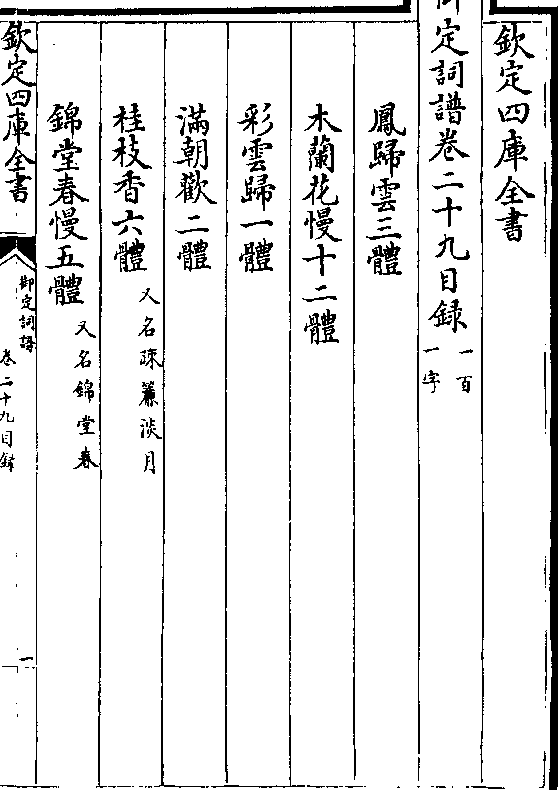 欽定四庫全書
御定詞譜卷二十九目録 一百一字
鳳歸雲三體
木蘭花慢十二體
彩雲歸一體
滿朝歡二體
桂枝香六體 又名疎簾淡月
錦堂春慢五體 又名錦堂春
欽定四庫全書 御定詞譜 卷二十九目録 一